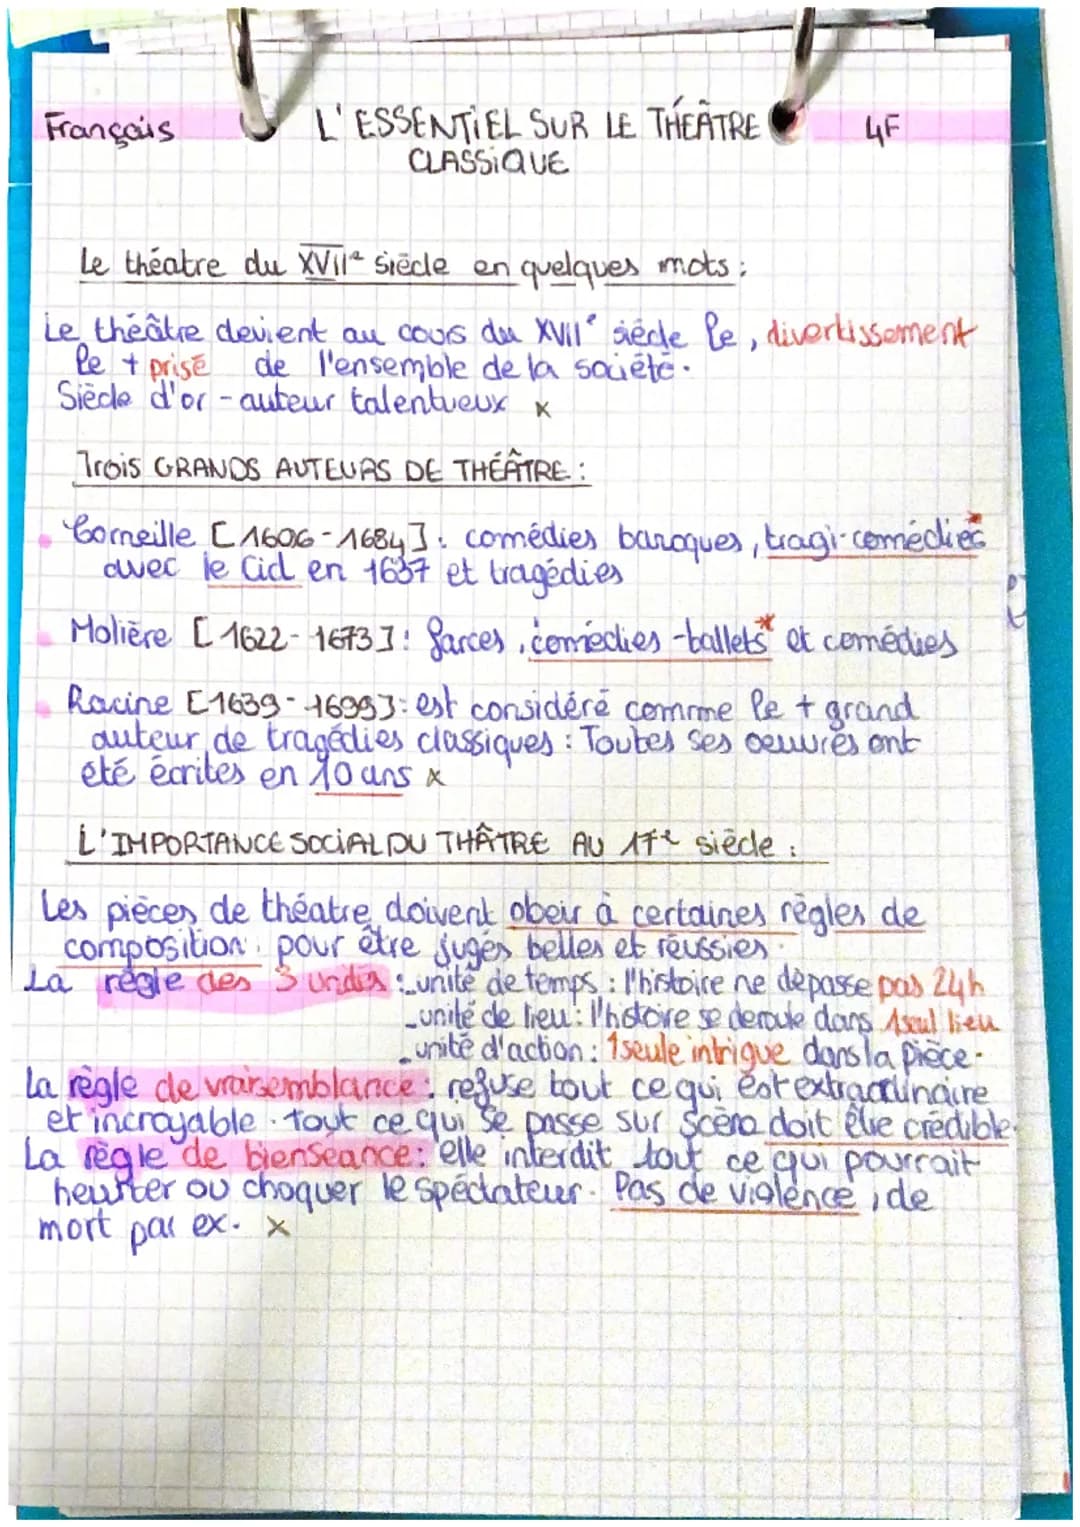 Français L'ESSENTIEL SUR LE THÉÂTRE 4F
CLASSIQUE
Le théatre du XVIIe siècle en quelques mots :
Le théâtre devient au cours du XVIIe siècle le , divertissement
le + prisé de l'ensemble de la société.
Siècle d'or - auteur talentueux x
Trois GRANDS AUTEURS DE THÉÂTRE :
Corneille [1606-1684] : comédies baroques, tragi-comédies*
avec le Cid en 1637 et tragédies
Molière [1622-1673] : farces, comédies-ballets* et comédies
Racine [1639-1699] : est considéré comme le + grand
auteur de tragédies classiques : Toutes ses oeuvres ont
été écrites en 10 ans x
L'IMPORTANCE SOCIAL DU THÂTRE AU 17e siècle :
Les pièces de théatre doivent obeir à certaines règles de
composition. pour être jugés belles et réussies.
La règle des 3 unités : - unité de temps : l'histoire ne dépasse pas 24h
- unité de lieu : l'histoire se deroule dans 1 seul lieu
- unité d'action : 1 seule intrigue dans la pièce.
La règle de vraisemblance : refuse tout ce qui est extraordinaire
et incroyable. tout ce qui se passe sur scène doit être crédible.
La règle de bienséance : elle interdit tout ce qui pourrait
heurter ou choquer le spectateur. Pas de violence, de
mort par ex. x